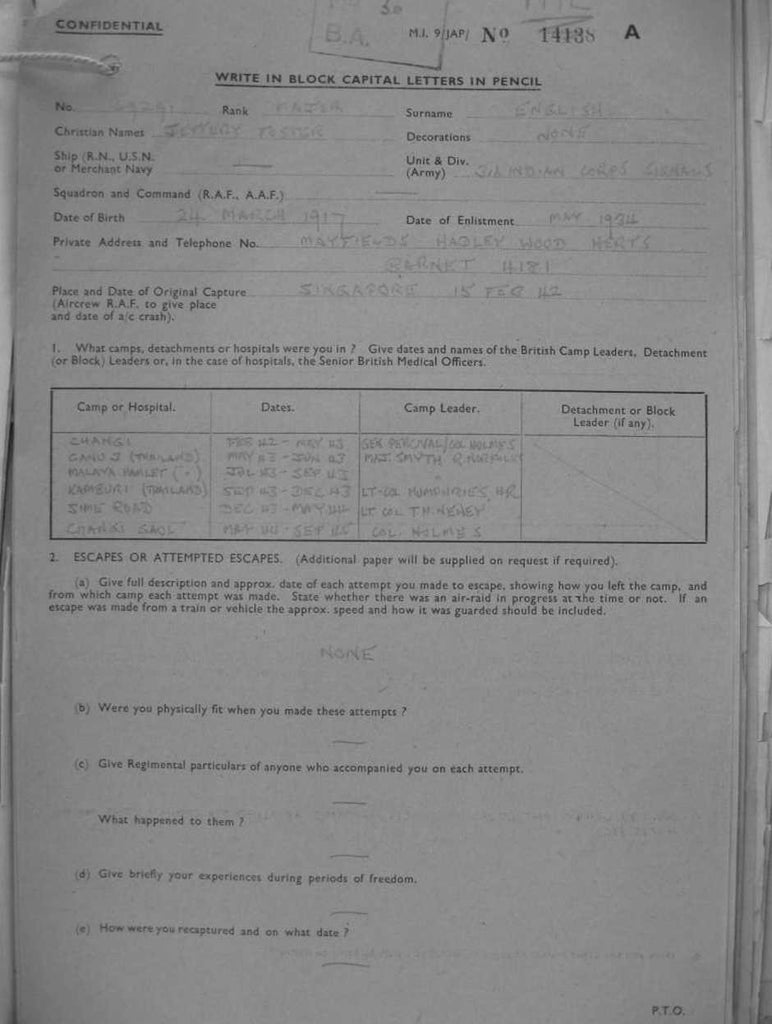 30
CONFIDENTIAL
B.A.
M.I. 9/JAP/ No 14138 A
WRITE IN BLOCK CAPITAL LETTERS IN PENCIL
No. Rank MAJOR Surname ENGLISH
Christian Names FOSTER Decorations NONE
Ship (R.N., U.S.N. or Merchant Navy —
Unit & Div. (Army) INDIAN CORPS SIGNALS
Squadron and Command (R.A.F., A.A.F.) —
Date of Birth 24 MARCH 1917 Date of Enlistment MAY 1934
Private Address and Telephone No. MAYFIENDS HADLEY WOOD HERTS
BARNET 4181
Place and Date of Original Capture SINGAPORE 15 FEB 42
(Aircrew R.A.F. to give place
and date of a/c crash).
1. What camps, detachments or hospitals were you in ? Give dates and names of the British Camp Leaders, Detachment
(or Block) Leaders or, in the case of hospitals, the Senior British Medical Officers.
Camp or Hospital. Dates. Camp Leader. Detachment or Block
Leader (if any).
CHANGI FEB 42 – MAY 43 GEN PERCIVAL/COL HOLMES
(THAILAND) MAY 43 – JUN 43 MAJ SMYTH R NORFOLKS
MALAYA HAMLET ( " ) JUL 43 – SEP 43 "
KANBURI (THAILAND) SEP 43 – DEC 43 LT-COL HUMPHRIES, HR
SIME ROAD DEC 43 – MAY 44 LT COL T H NEWEY
CHANGI GAOL MAY 44 – SEP 45 COL. HOLMES
2. ESCAPES OR ATTEMPTED ESCAPES. (Additional paper will be supplied on request if required).
(a) Give full description and approx. date of each attempt you made to escape, showing how you left the camp, and
from which camp each attempt was made. State whether there was an air-raid in progress at the time or not. If an
escape was made from a train or vehicle the approx. speed and how it was guarded should be included.
NONE
(b) Were you physically fit when you made these attempts ?
—
(c) Give Regimental particulars of anyone who accompanied you on each attempt.
—
What happened to them ?
—
(d) Give briefly your experiences during periods of freedom.
—
(e) How were you recaptured and on what date ?
—
P.T.O.